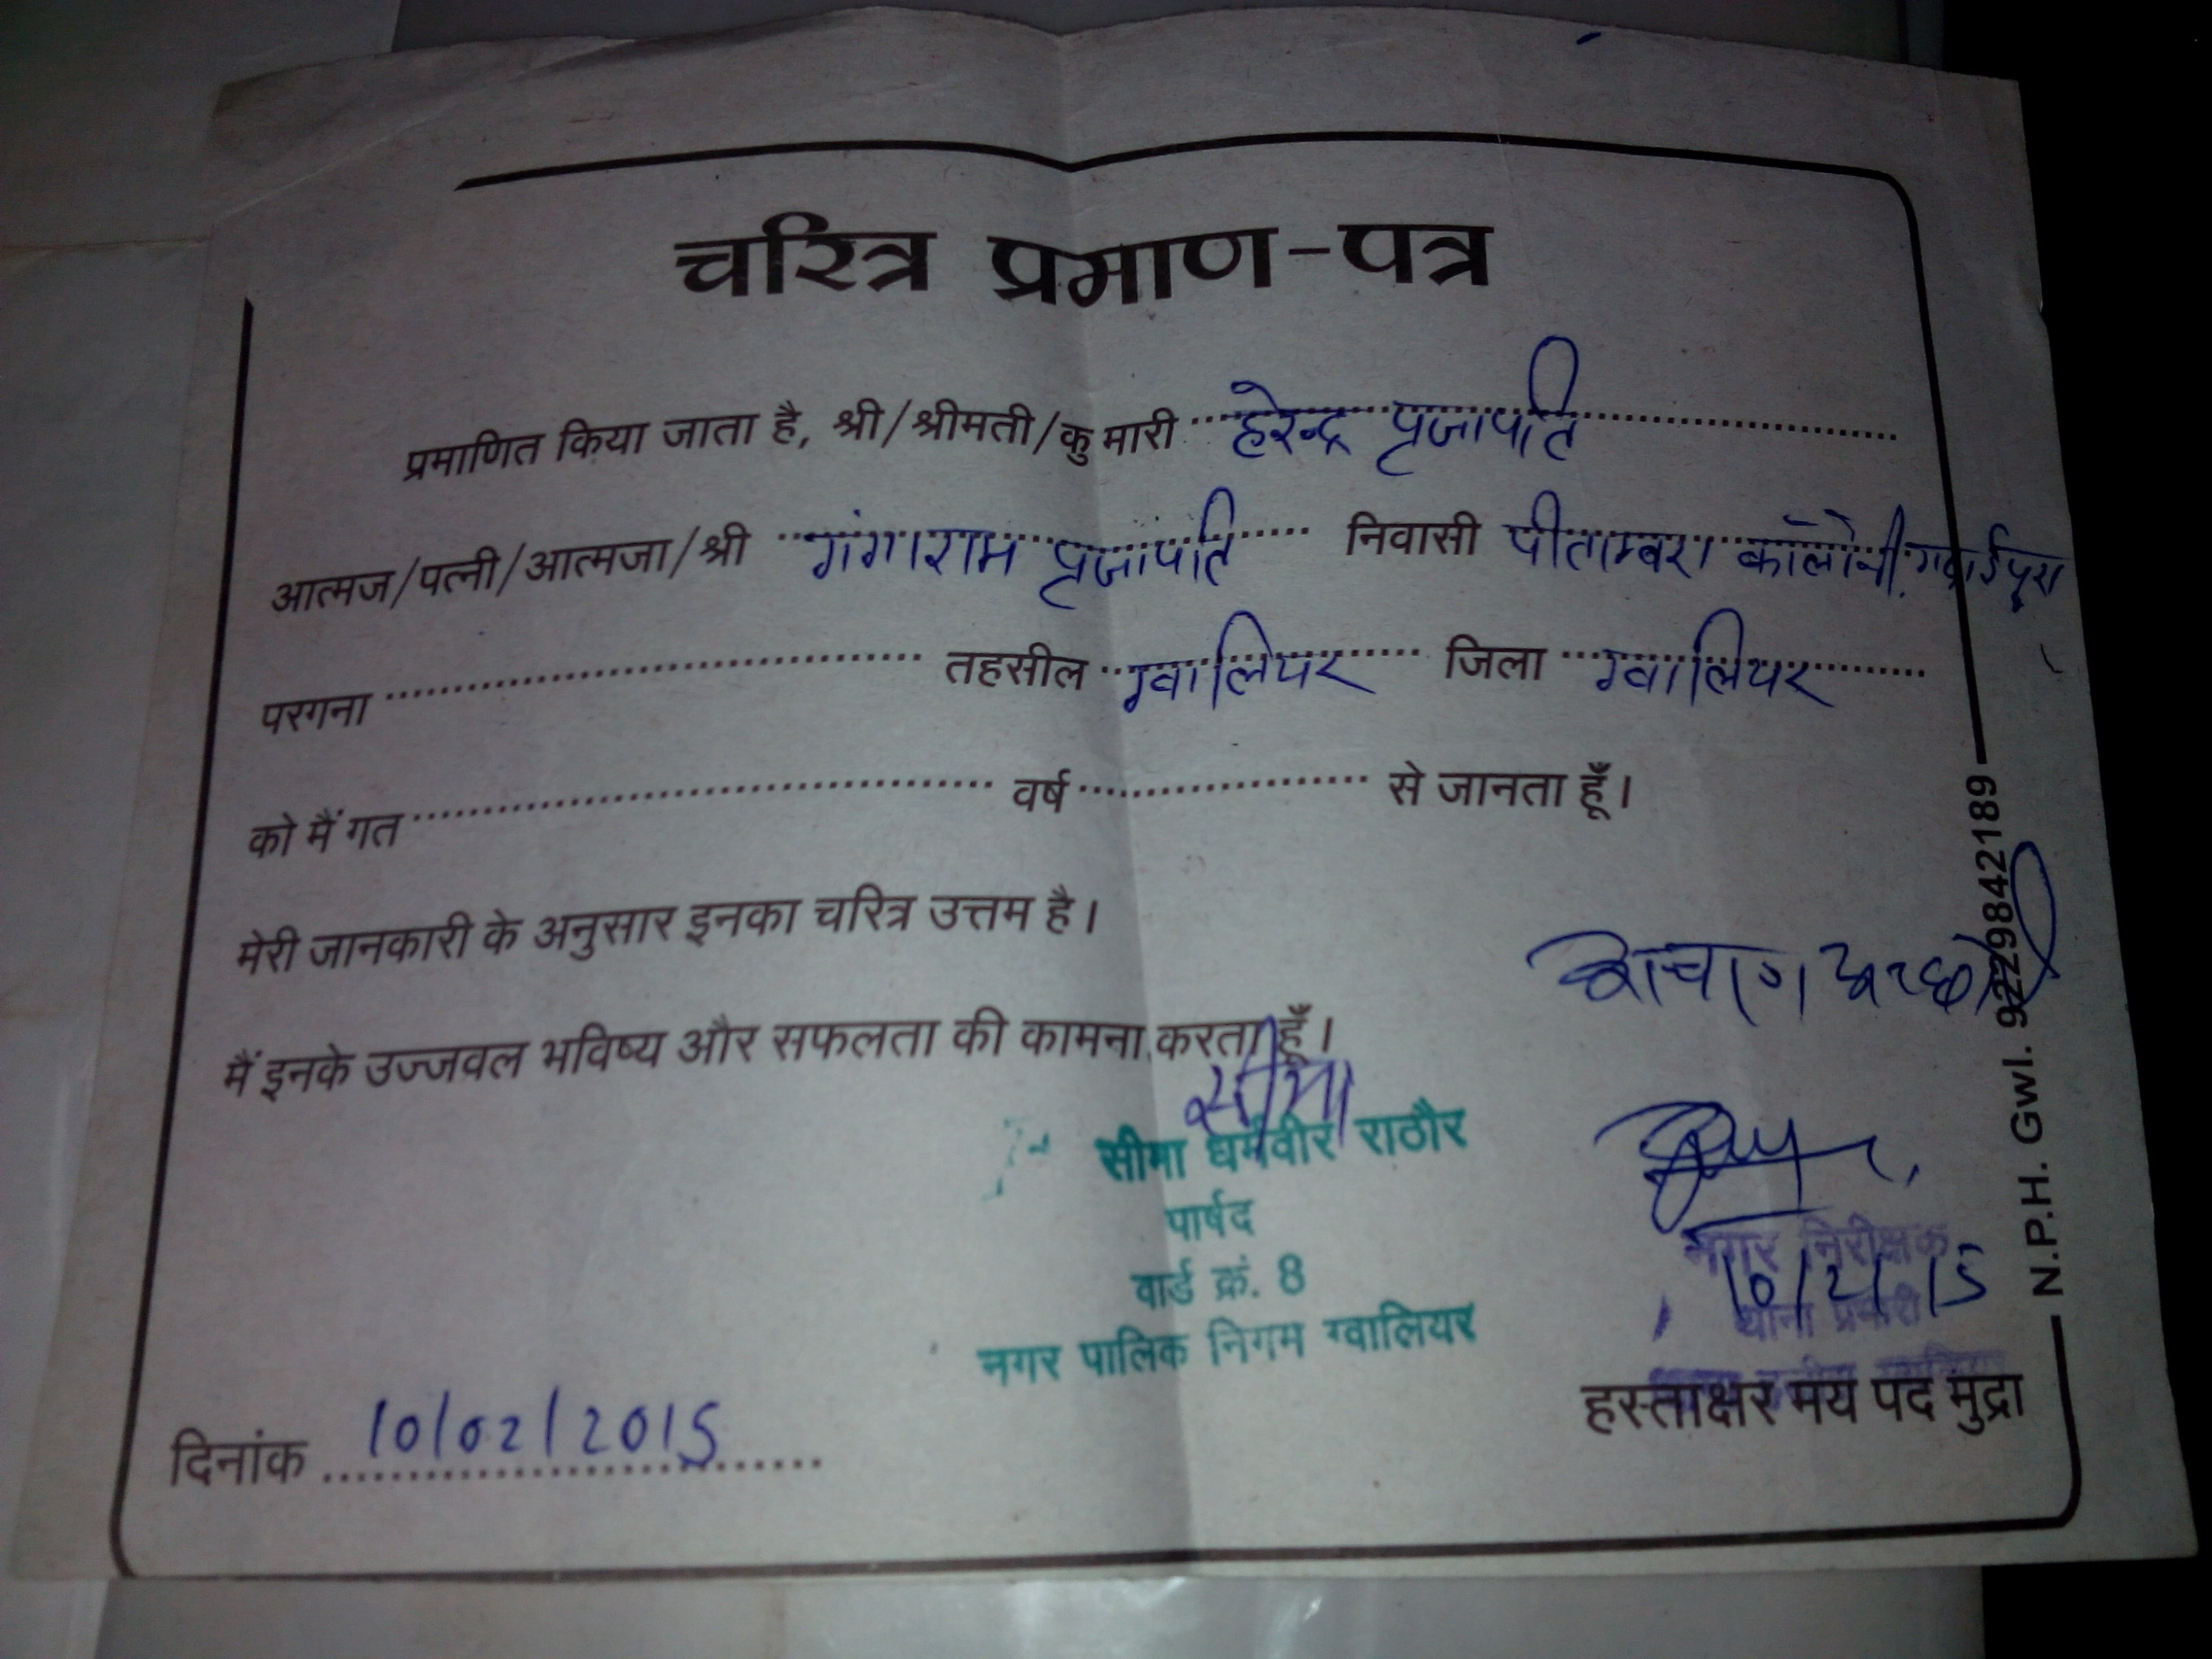 चरित्र प्रमाण-पत्र
प्रमाणित किया जाता है, श्री/श्रीमती/कुमारी हरेन्द्र प्रजापति
आत्मज/पत्नी/आत्मजा/श्री गंगाराम प्रजापति निवासी पीताम्बरा कॉलोनी
परगना तहसील ग्वालियर जिला ग्वालियर
को मैं गत वर्ष से जानता हूँ।
मेरी जानकारी के अनुसार इनका चरित्र उत्तम है।
मैं इनके उज्जवल भविष्य और सफलता की कामना करता हूँ।
सीमा
सीमा धर्मवीर राठौर
पार्षद
वार्ड क्रं. 8
नगर पालिक निगम ग्वालियर
नगर निरीक्षक
10/2/15
थाना प्रभारी
हस्ताक्षर मय पद मुद्रा
दिनांक 10/02/2015
N.P.H. Gwl. 9229842189